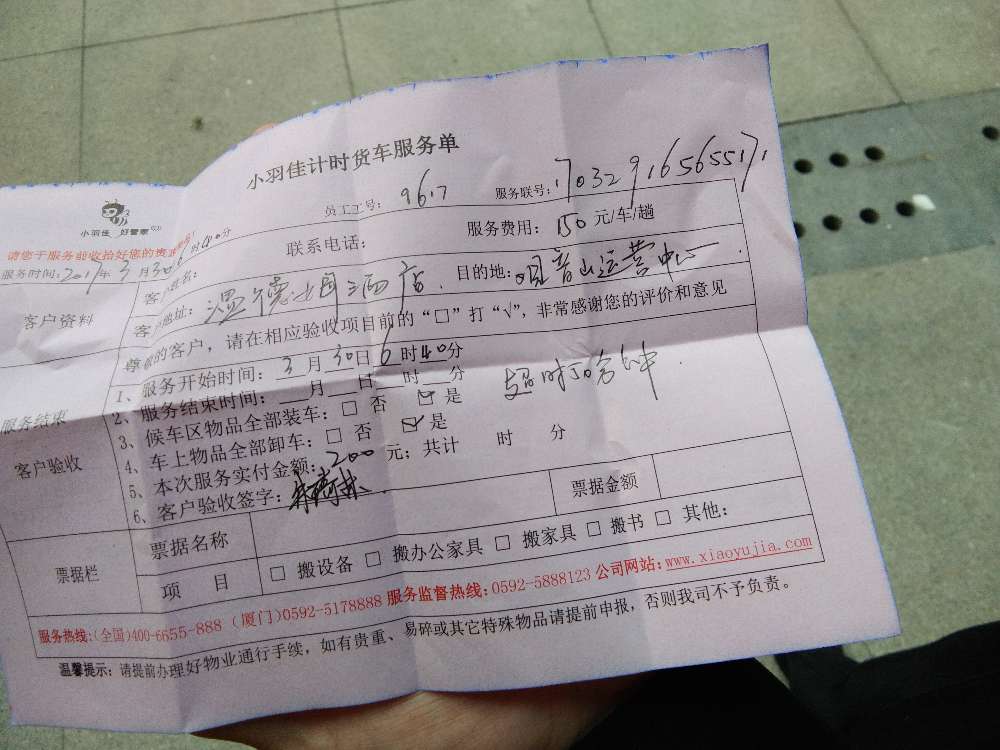 小羽佳计时货车服务单
小羽佳 好管家
员工工号: 9617
服务联号: 17032916565517
服务时间: 2017年3月30日6时40分
客户姓名: 联系电话: 服务费用: 150元/车/趟
客户资料
客户地址: 温德姆酒店 目的地: 观音山运营中心
尊敬的客户，请在相应验收项目前的“□”打“√”，非常感谢您的评价和意见
1、服务开始时间: 3月30日6时40分
2、服务结束时间: 月 日 时 分
服务结束
3、候车区物品全部装车: □ 否 ☑ 是
4、车上物品全部卸车: □ 否 ☑ 是
客户验收
5、本次服务实付金额: 200元; 共计 时 分
6、客户验收签字:
票据栏
票据名称 票据金额
项 目 □ 搬设备 □ 搬办公家具 □ 搬家具 □ 搬书 □ 其他:
服务热线:(全国)400-6655-888 (厦门)0592-5178888 服务监督热线:0592-5888123 公司网站:www.xiaoyujia.com
温馨提示: 请提前办理好物业通行手续，如有贵重、易碎或其它特殊物品请提前申报，否则我司不予负责。